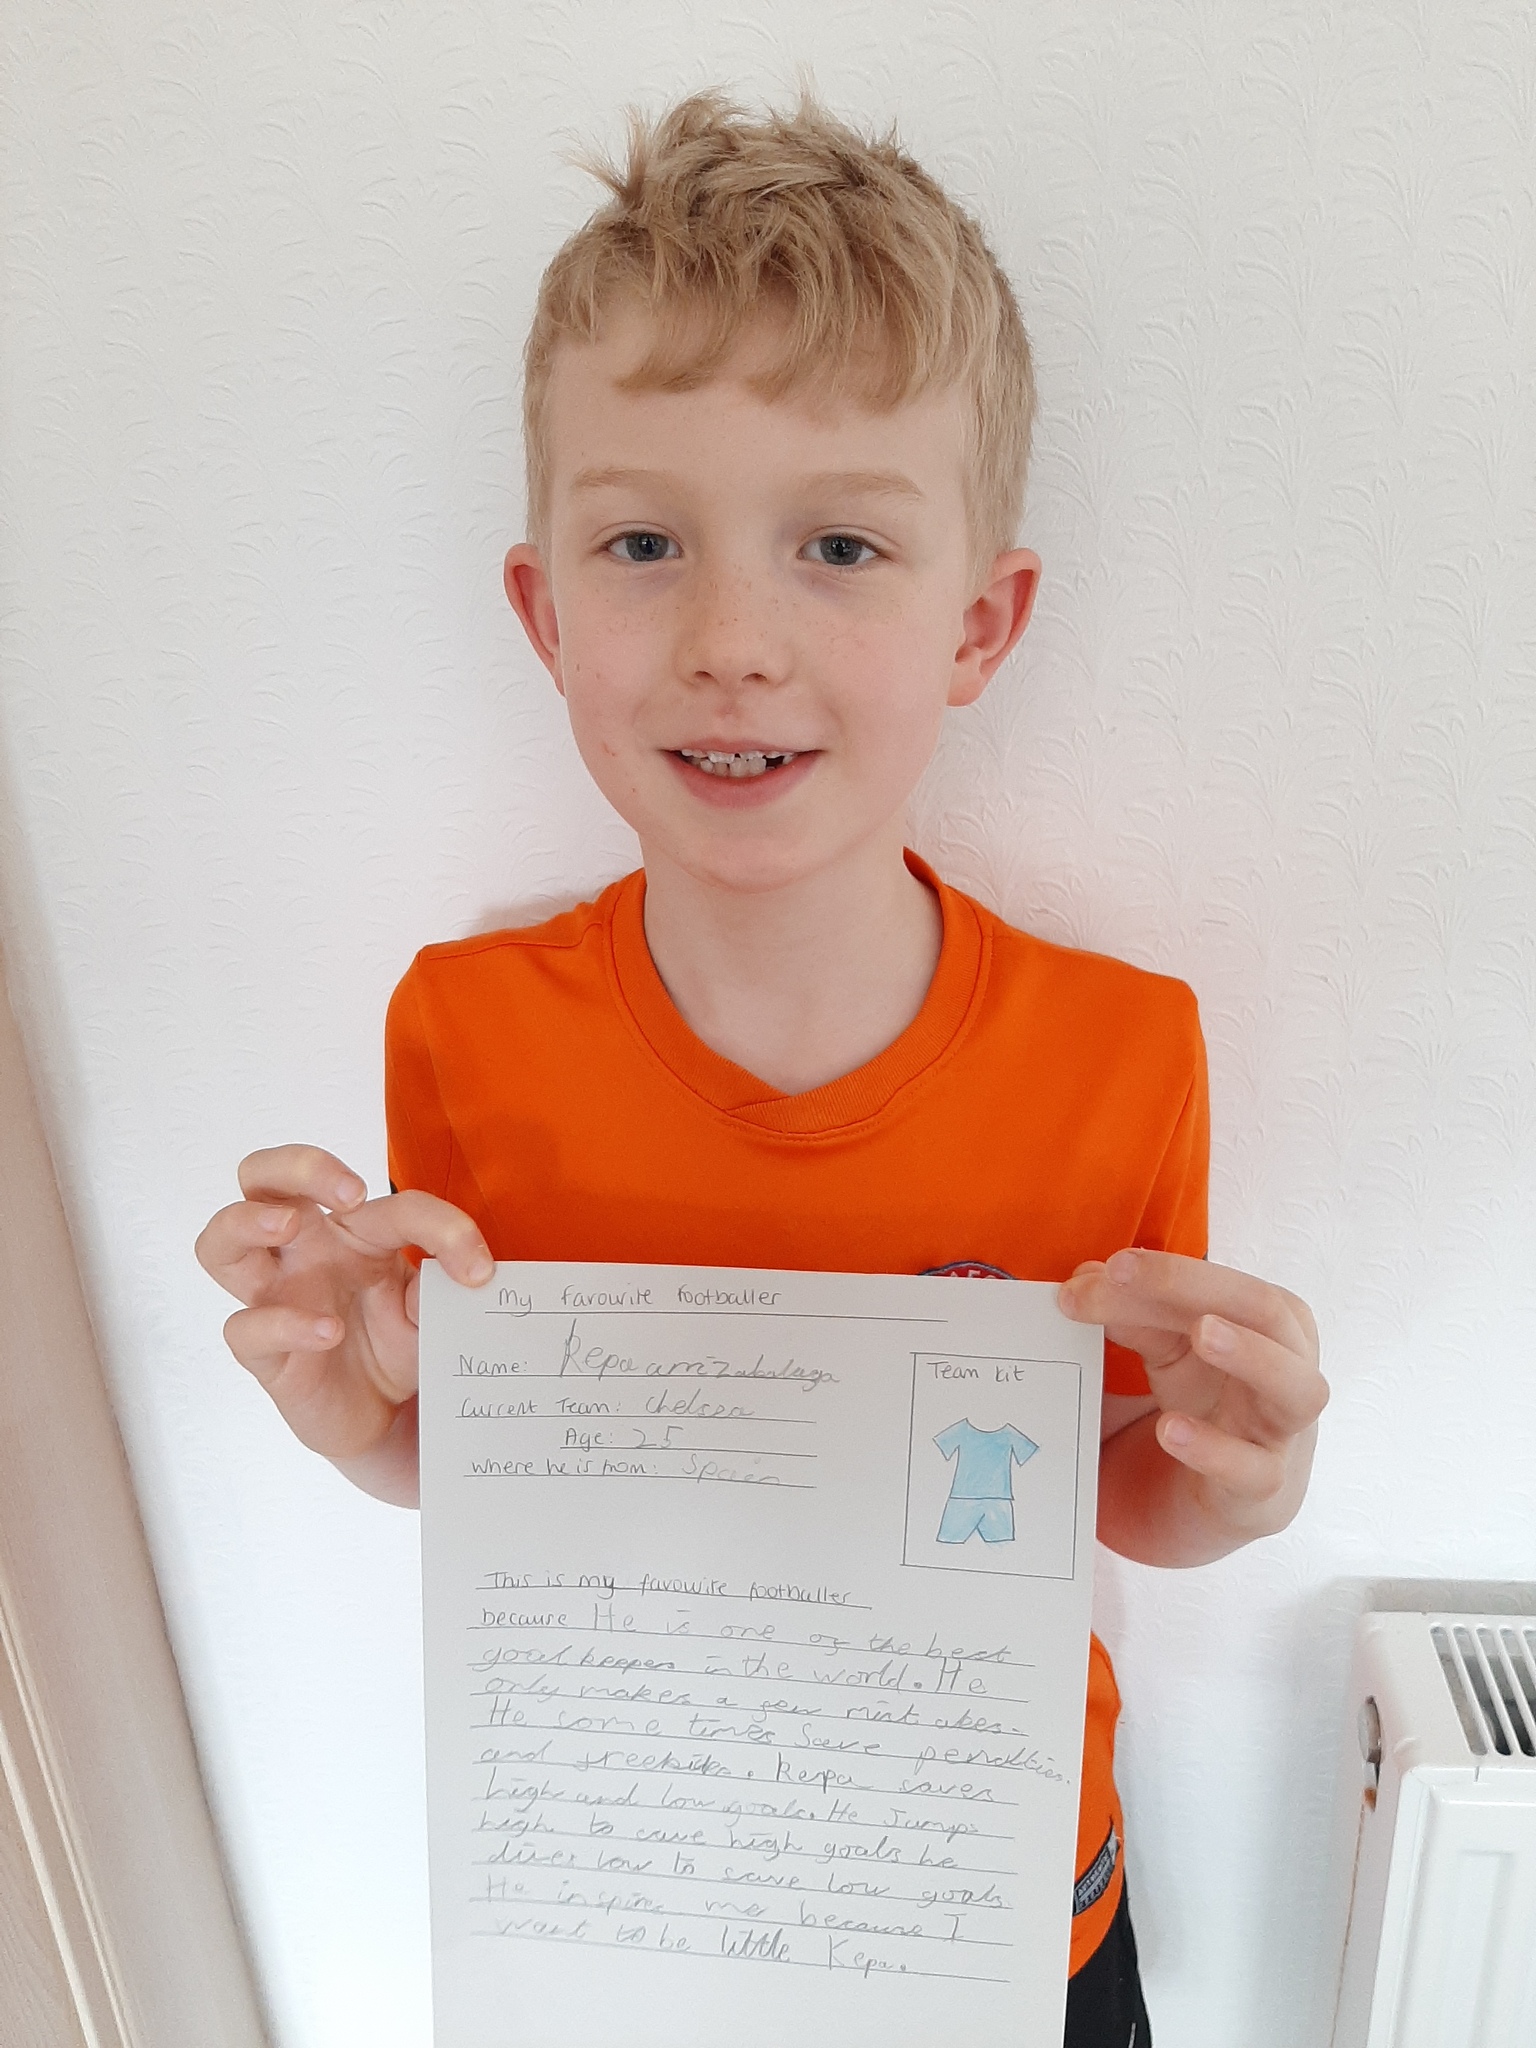 AFC
My favourite footballer
Name: Kepa arrizabalaga
Current Team: Chelsea
Age: 25
Where he is from: Spain
Team kit
This is my favourite footballer
because He is one of the best
goal keepers in the world. He
only makes a few mistakes.
He some times Save penalties.
and freekiks. Kepa saves
high and low goals. He Jumps
high to save high goals he
dives low to save low goals.
He inspires me because I
want to be little Kepa.